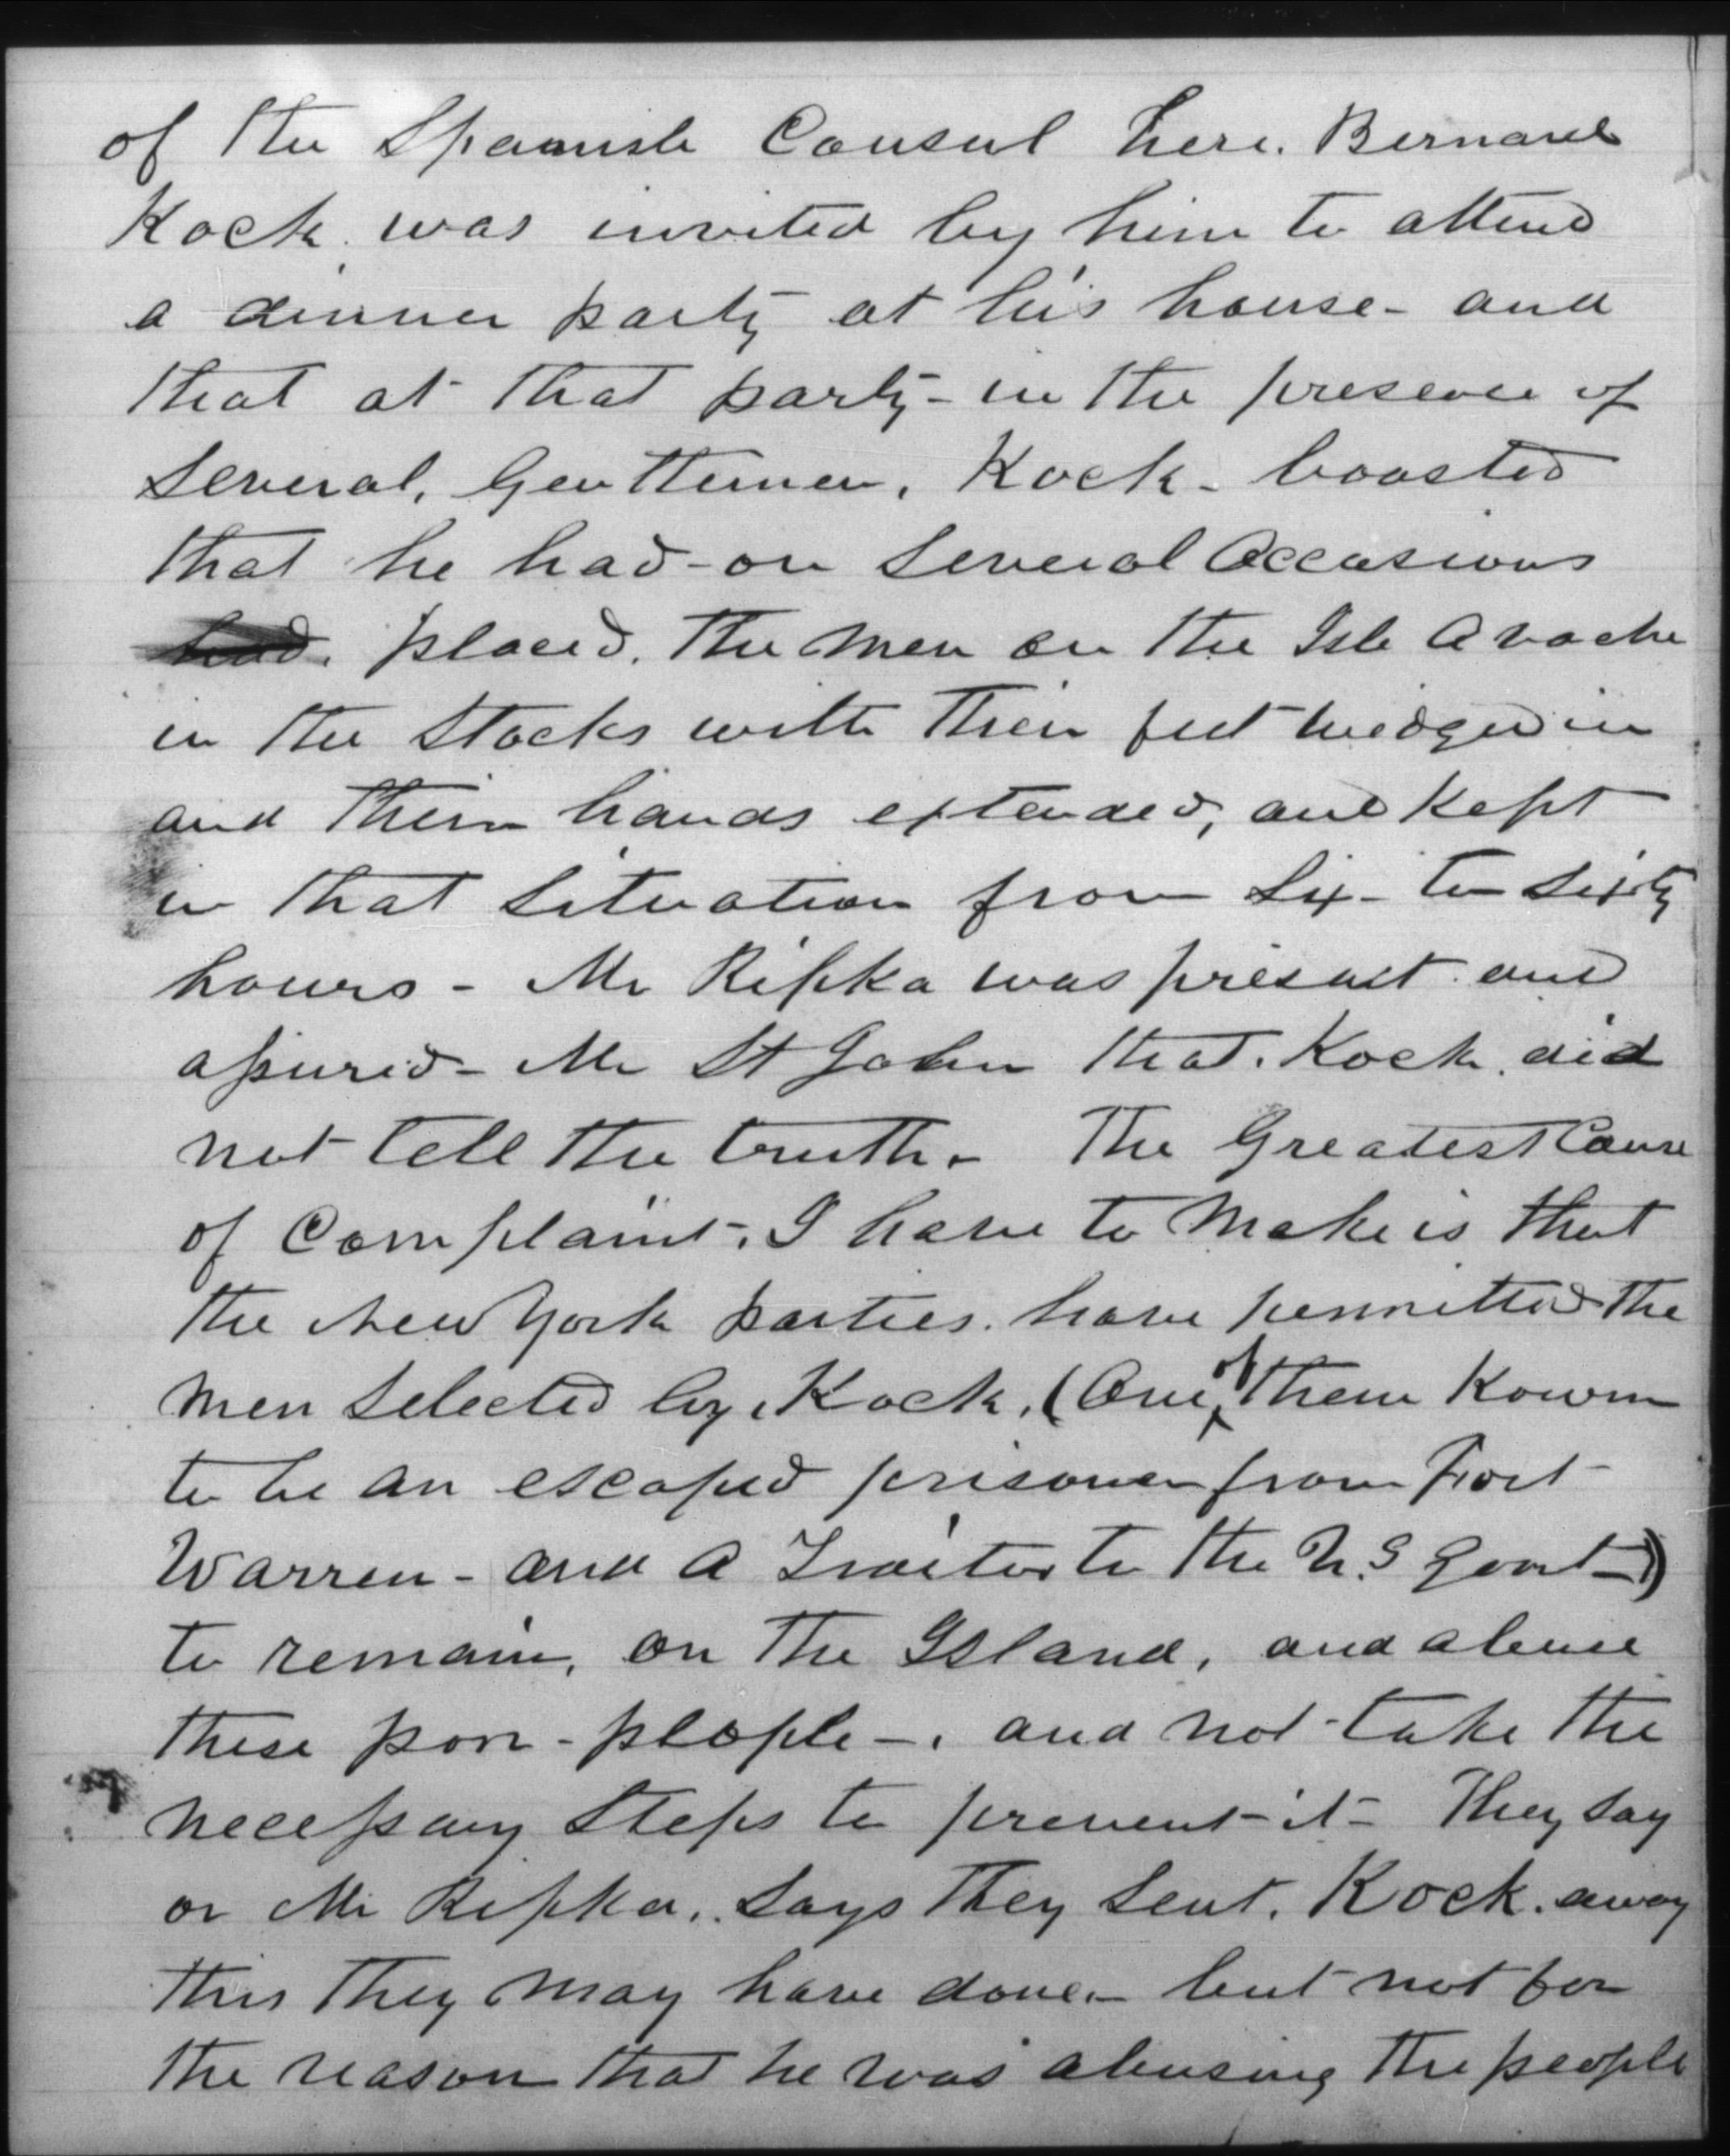 of the Spanish Consul here. Bernard
Kock was invited by him to attend
a dinner party at his house - and
that at that party - in the presence of
Several, Gentlemen, Kock - boasted
that he had - on Several Occasions
had. placed. the men on the Isle A vache
in the Stocks with their feet wedged in
and their hands extended, and Kept
in that Situation from Six - to Sixty
hours - Mr Ripka was present and
assured - Mr St John that. Kock. did
not tell the truth. - The Greatest Cause
of Complaint -. I have to Make is that
the New York parties. have permitted the
men Selected by Kock. (One of them Kowwn
to be an escaped prisoner from Fort
Warren - and A Traitor to the U.S Govt -)
to remain, on the Island, and abuse
these poor - people -. and not take the
necessary Steps to prevent - it - They Say
or Mr Ripka. Says they Sent. Kock. away
this they may have done. - but not for
the reason that he was abusing the people